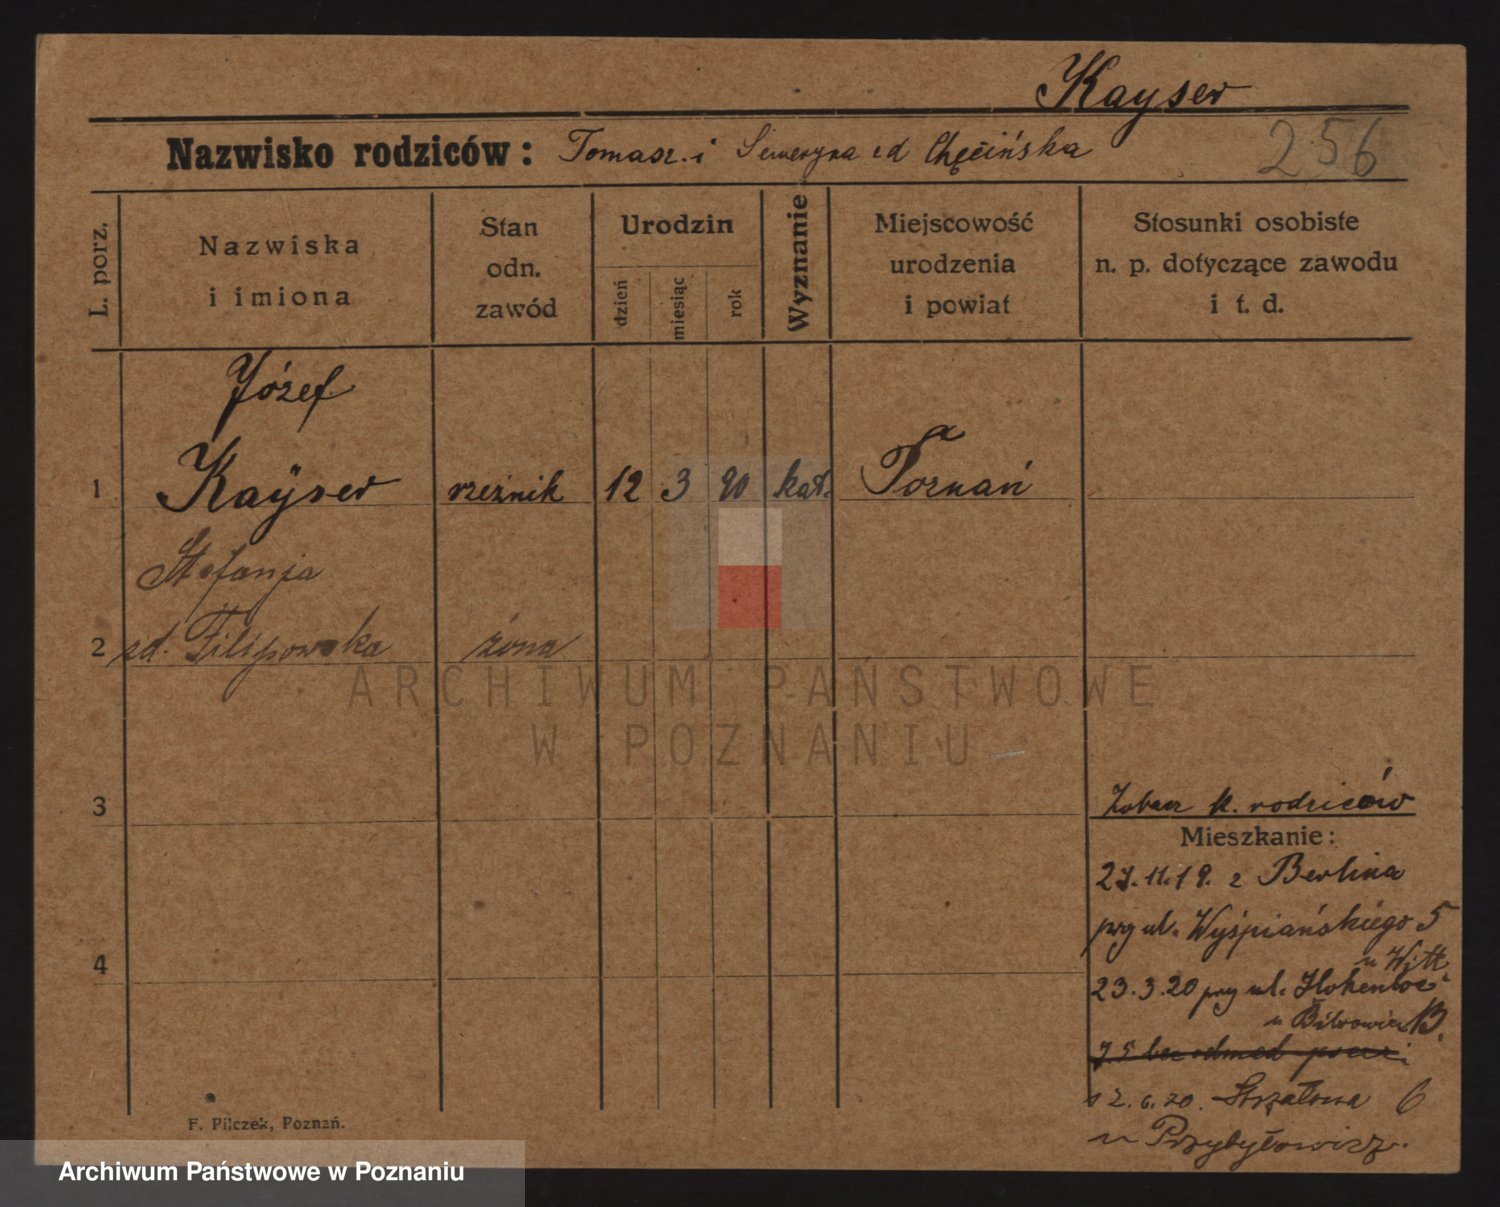 Kayser
Nazwisko rodziców: Tomasz i Seweryna zd Chęcińska
256
L. porz.
Nazwiska
i imiona
Stan
odn.
zawód
Urodzin
dzień
miesiąc
rok
Wyznanie
Miejscowość
urodzenia
i powiat
Stosunki osobiste
n. p. dotyczące zawodu
i t. d.
Józef
1 Kayser rzeźnik 12 3 90 kat. Poznań
Stefanja
2 zd. Filipowska żona
ARCHIWUM PAŃSTWOWE
W POZNANIU
3
Zobacz k. rodziców
Mieszkanie:
27.11.19. z Berlina
przy ul. Wyśpiańskiego 5
4
23.3.20 przy ul.
12.6.20. Strzałowa 6
u Przybyłowicz.
F. Pilczek, Poznań.
Archiwum Państwowe w Poznaniu